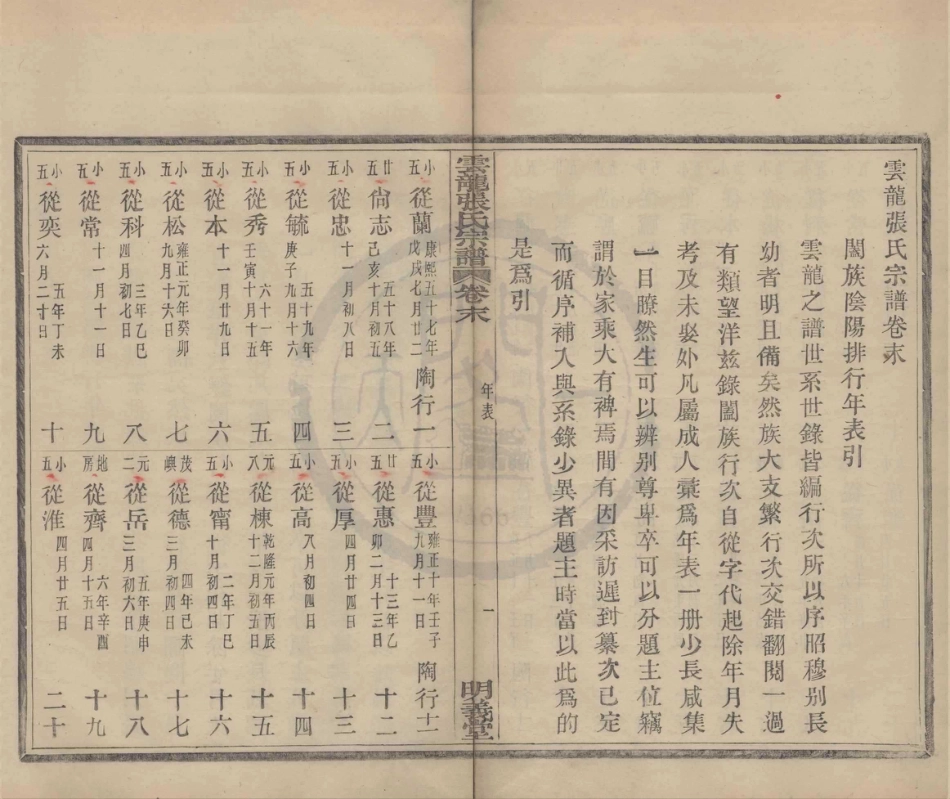 雲龍張氏宗譜卷末
闔族陰陽排行年表引
雲龍之譜世系世錄皆編行次所以序昭穆别長
幼者明且備矣然族大支繁行次交錯翻閱一過
有類望洋兹錄闔族行次自從字代起除年月失
考及未娶外凡屬成人彙爲年表一册少長咸集
一目瞭然生可以辨别尊卑卒可以分題主位竊
謂於家乘大有裨焉間有因采訪遲到纂次已定
而循序補入與系錄少異者題主時當以此爲的
是爲引
雲龍張氏宗譜 卷末 年表 一 明義堂
小五 從蘭 康熙五十七年戊戌七月廿二 陶行一
廿五 尙志 五十八年己亥十月初五 二
小五 從忠 十一月初八日 三
小五 從毓 五十九年庚子九月十六 四
小五 從秀 六十一年壬寅十月十一 五
小五 從本 十一月廿九日 六
小五 從松 雍正元年癸卯九月十六日 七
小五 從科 三年乙巳四月初七日 八
小五 從常 十一月十一日 九
小五 從奕 五年丁未六月二十日 十
小五 從豐 雍正十年壬子九月十一日 陶行十一
廿五 從惠 十三年乙卯二月十三日 十二
小五 從厚 四月廿四日 十三
小五 從高 八月初四日 十四
元八 從棟 乾隆元年丙辰十二月初五日 十五
小五 從甯 二年丁巳十月初四日 十六
茂嶼 從德 四年己未三月初四日 十七
元二 從岳 五年庚申三月初六日 十八
地房 從齊 六年辛酉四月十五日 十九
小五 從淮 四月廿五日 二十